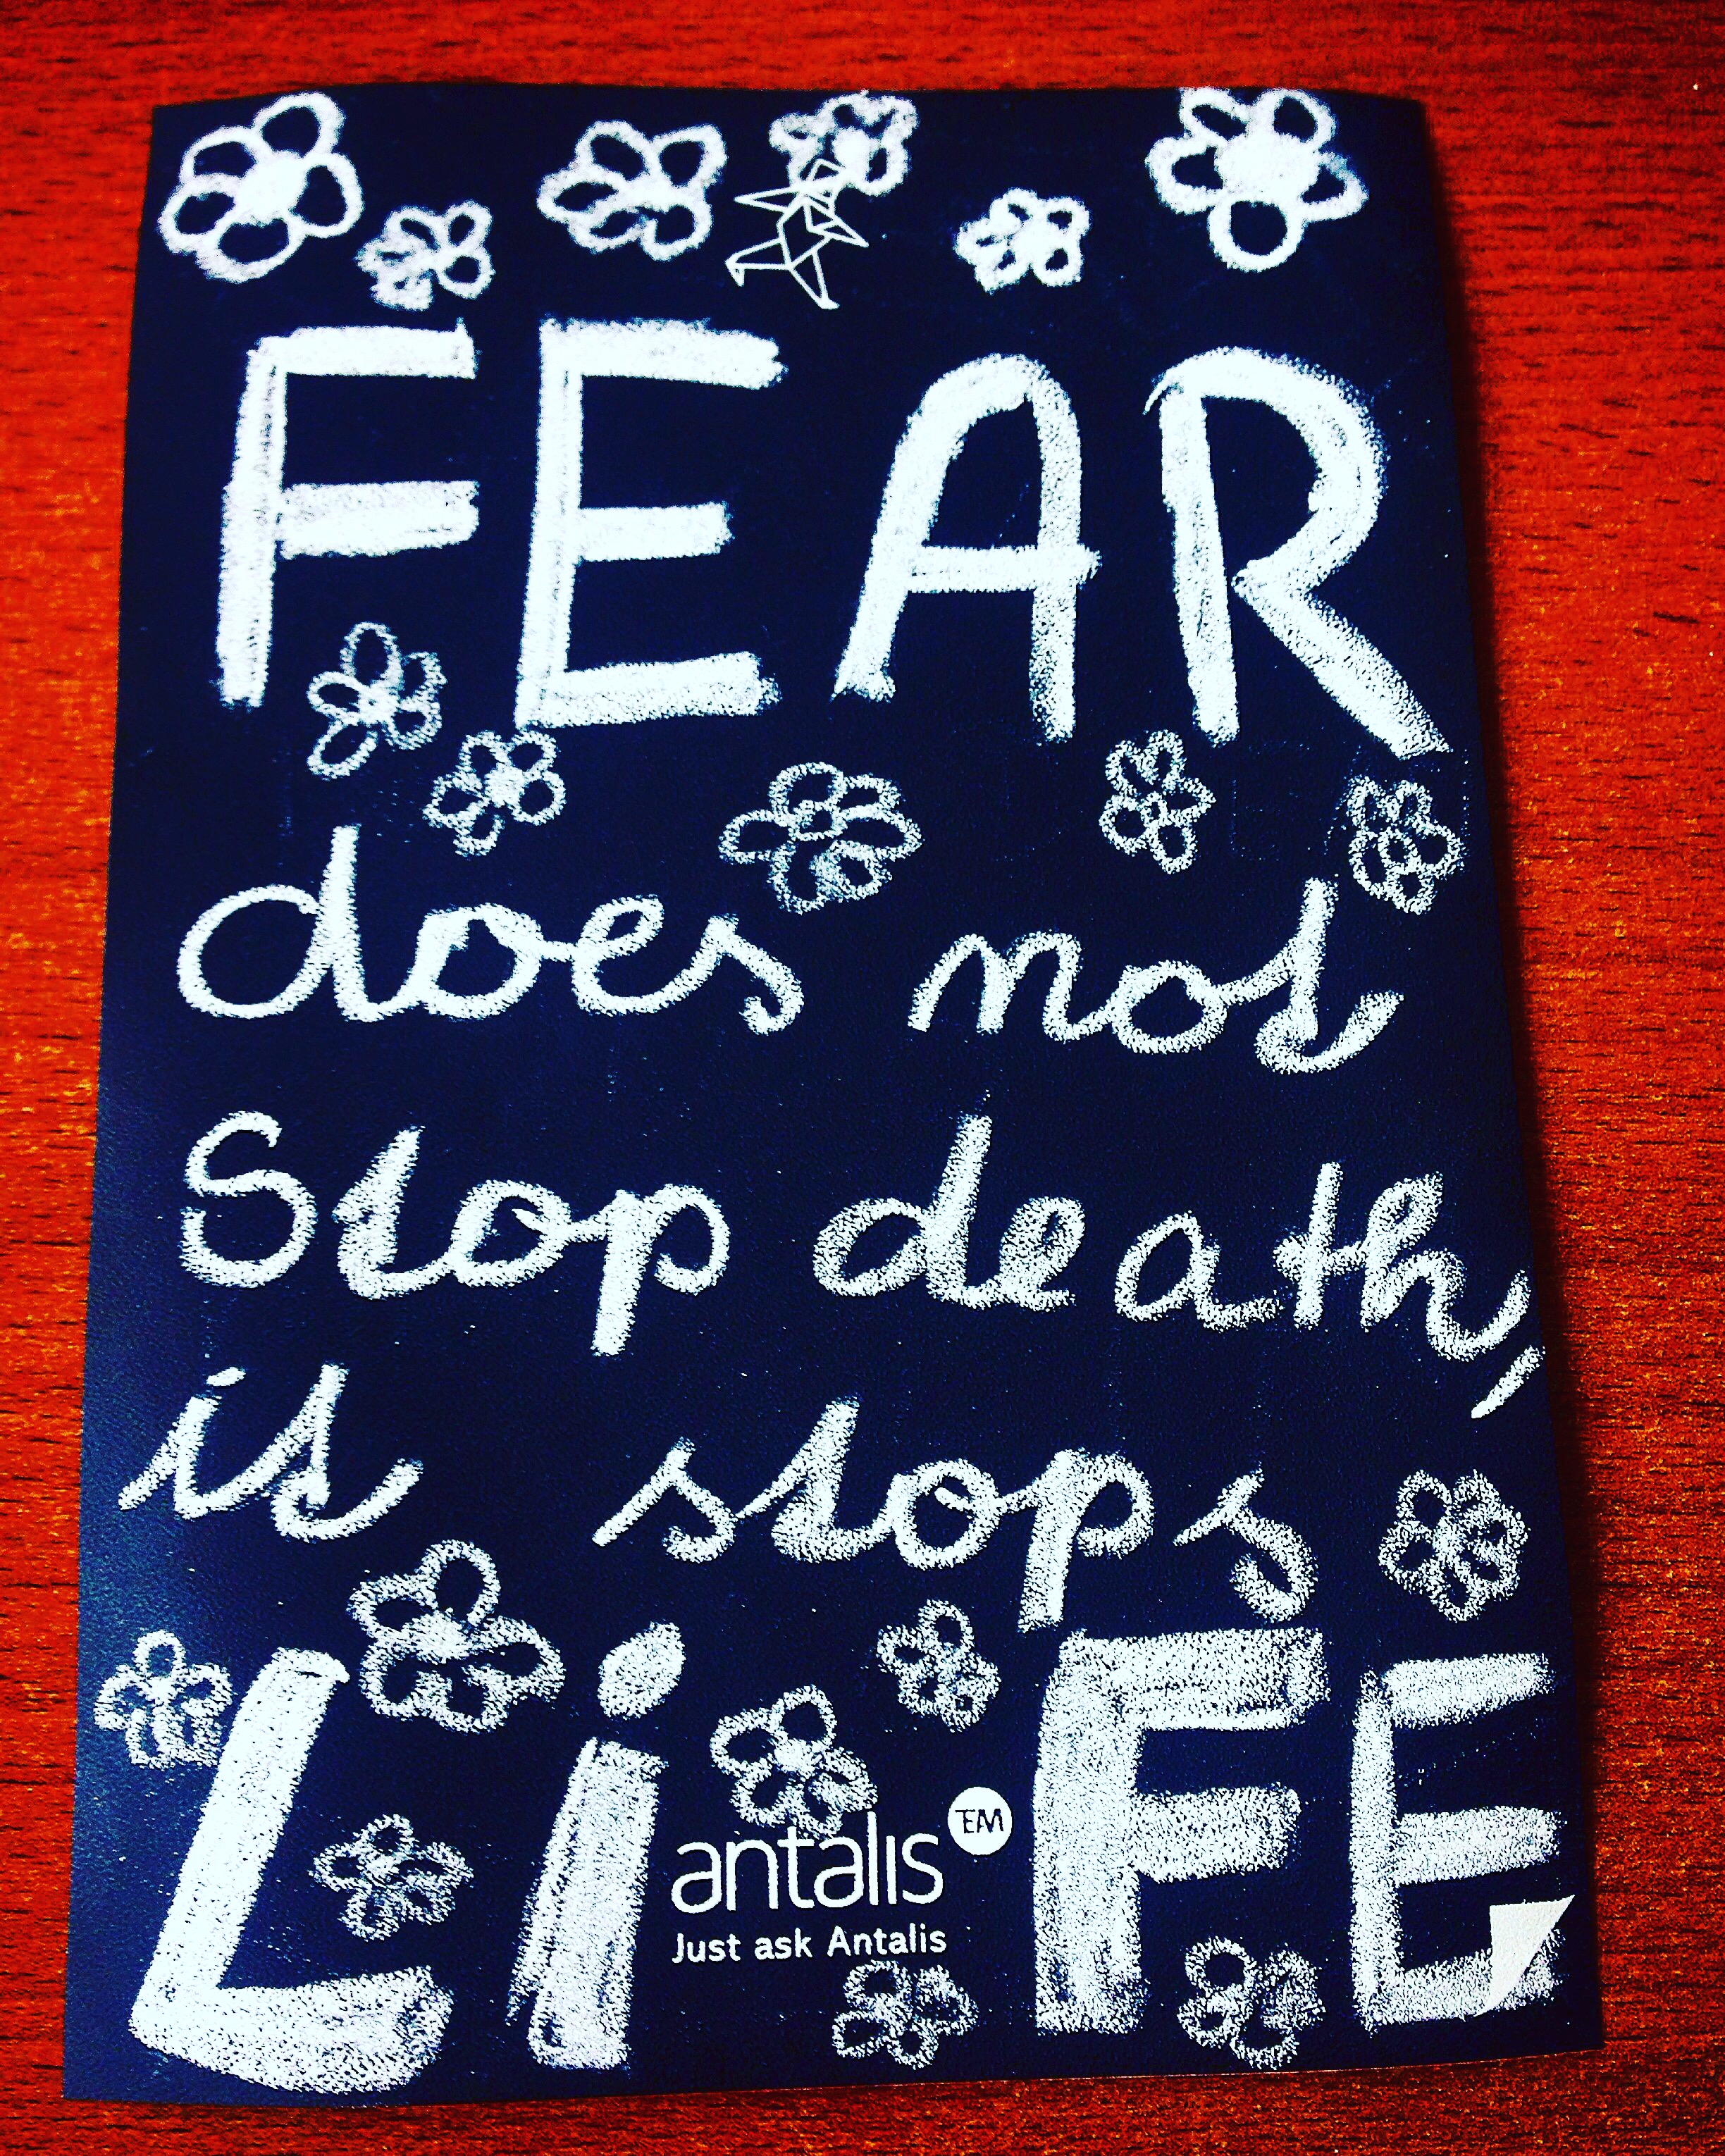 FEAR
does not
Stop death,
it stops
LiFE
antalis TEM
Just ask Antalis